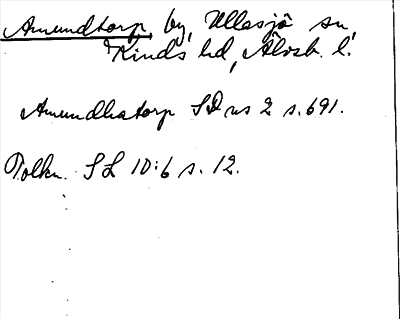 Amundtorp, by, Ullasjö sn,
Kinds hd, Älvsb. l.
Amundhatorp SD ns 2 s. 691.
Tolkn. SL 10:6 s. 12.